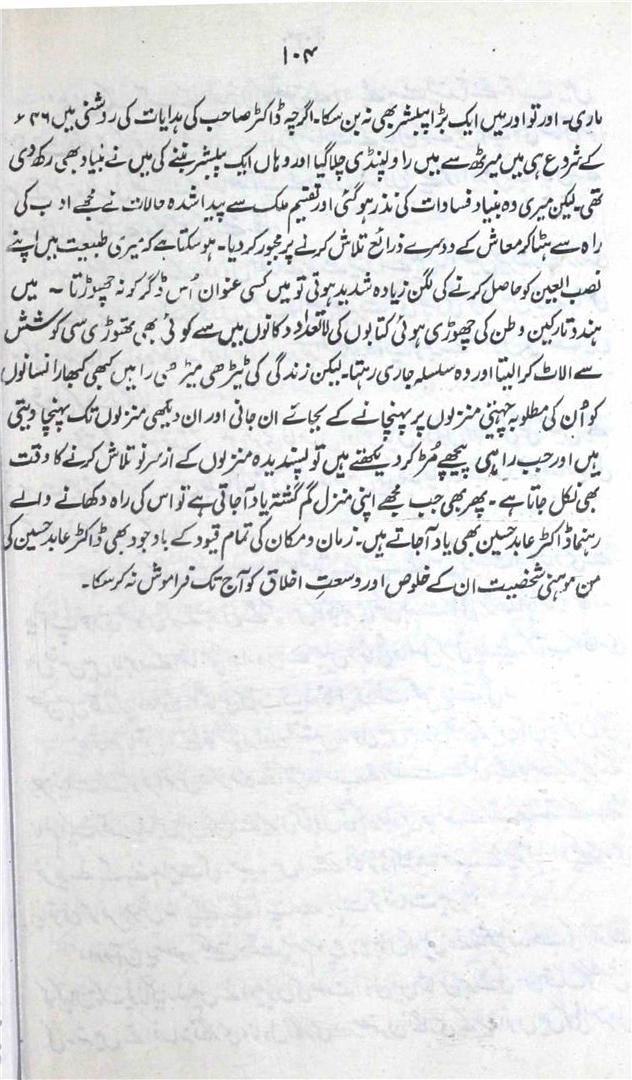 ۱۰۴
ماری۔ اور تو اور میں ایک بڑا پبلشر بھی نہ بن سکا۔ اگرچہ ڈاکٹر صاحب کی ہدایات کی روشنی میں ۴۶ء
کے شروع ہی میں میرٹھ سے میں راولپنڈی چلا گیا اور وہاں ایک پبلشر بننے کی میں نے بنیاد بھی رکھ دی
تھی۔ لیکن میری وہ بنیاد فسادات کی نذر ہو گئی اور تقسیم ملک سے پیدا شدہ حالات نے مجھے ادب کی
راہ سے ہٹا کر معاش کے دوسرے ذرائع تلاش کرنے پر مجبور کر دیا۔ ہو سکتا ہے کہ میری طبیعت میں اپنے
نصب العین کو حاصل کرنے کی لگن زیادہ شدید ہوتی تو میں کسی عنوان اُس ڈگر کو نہ چھوڑتا ~ میں
ہندو تارکین وطن کی چھوڑی ہوئی کتابوں کی لاتعداد دکانوں میں سے کوئی بھی تھوڑی سی کوشش
سے الاٹ کرا لیتا اور وہ سلسلہ جاری رہتا۔ لیکن زندگی کی ٹیڑھی میڑھی راہیں کبھی کبھار انسانوں
کو اُن کی مطلوبہ جہتی منزلوں پر پہنچانے کے بجائے ان جانی اور ان دیکھی منزلوں تک پہنچا دیتی
ہیں اور جب راہی پیچھے مُڑ کر دیکھتے ہیں تو پسندیدہ منزلوں کے از سرِ نو تلاش کرنے کا وقت
بھی نکل جاتا ہے۔ پھر بھی جب مجھے اپنی منزل گم گشتہ یاد آ جاتی ہے تو اس کی راہ دکھانے والے
رہنما ڈاکٹر عابد حسین بھی یاد آ جاتے ہیں۔ زمان و مکان کی تمام قیود کے باوجود بھی ڈاکٹر عابد حسین کی
من موہنی شخصیت ان کے خلوص اور وسعتِ اخلاق کو آج تک فراموش نہ کر سکا۔